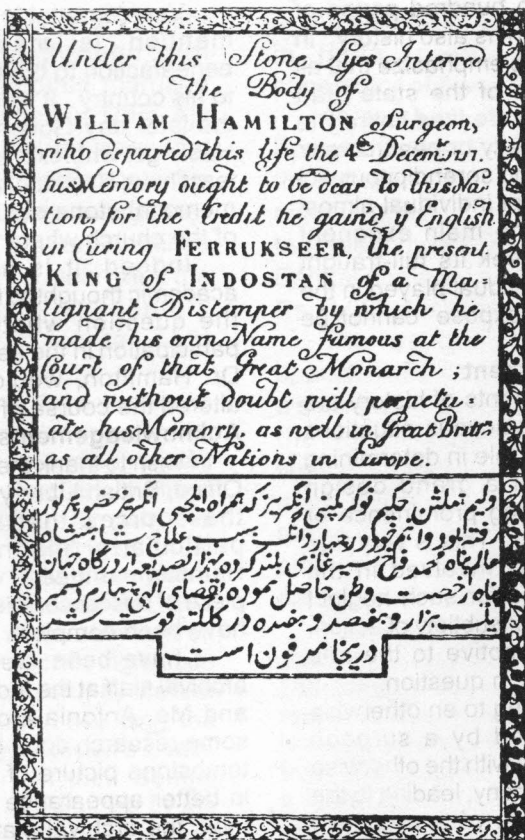 Under this Stone Lyes Interred
the Body of
WILLIAM HAMILTON Surgeon,
who departed this life the 4th Decemr 1717.
his Memory ought to be dear to this Na-
tion, for the Credit he gain'd ye English
in Curing FERRUKSEER, the present
KING of INDOSTAN of a Ma-
lignant Distemper, by which he
made his own Name famous at the
Court of that Great Monarch ;
and without doubt will perpetu-
ate his Memory, as well in Great Britn.
as all other Nations in Europe.
ولیم هملتن حکیم نوکر کمپنی انگریز که همراه ایلچی انگریز بحضور پرنور
رفته بود و اسم خود در چهار دانگ بسبب علاج شاهنشاه
عالم پناه محمد فرخ سیر غازی بلند کرده بهزار تصدیع از درگاه جهان
پناه رخصت وطن حاصل نموده بقضای الهی چهارم دسمبر
یکهزار و هفتصد و هفده در کلکته فوت شد
دریجا مدفون است